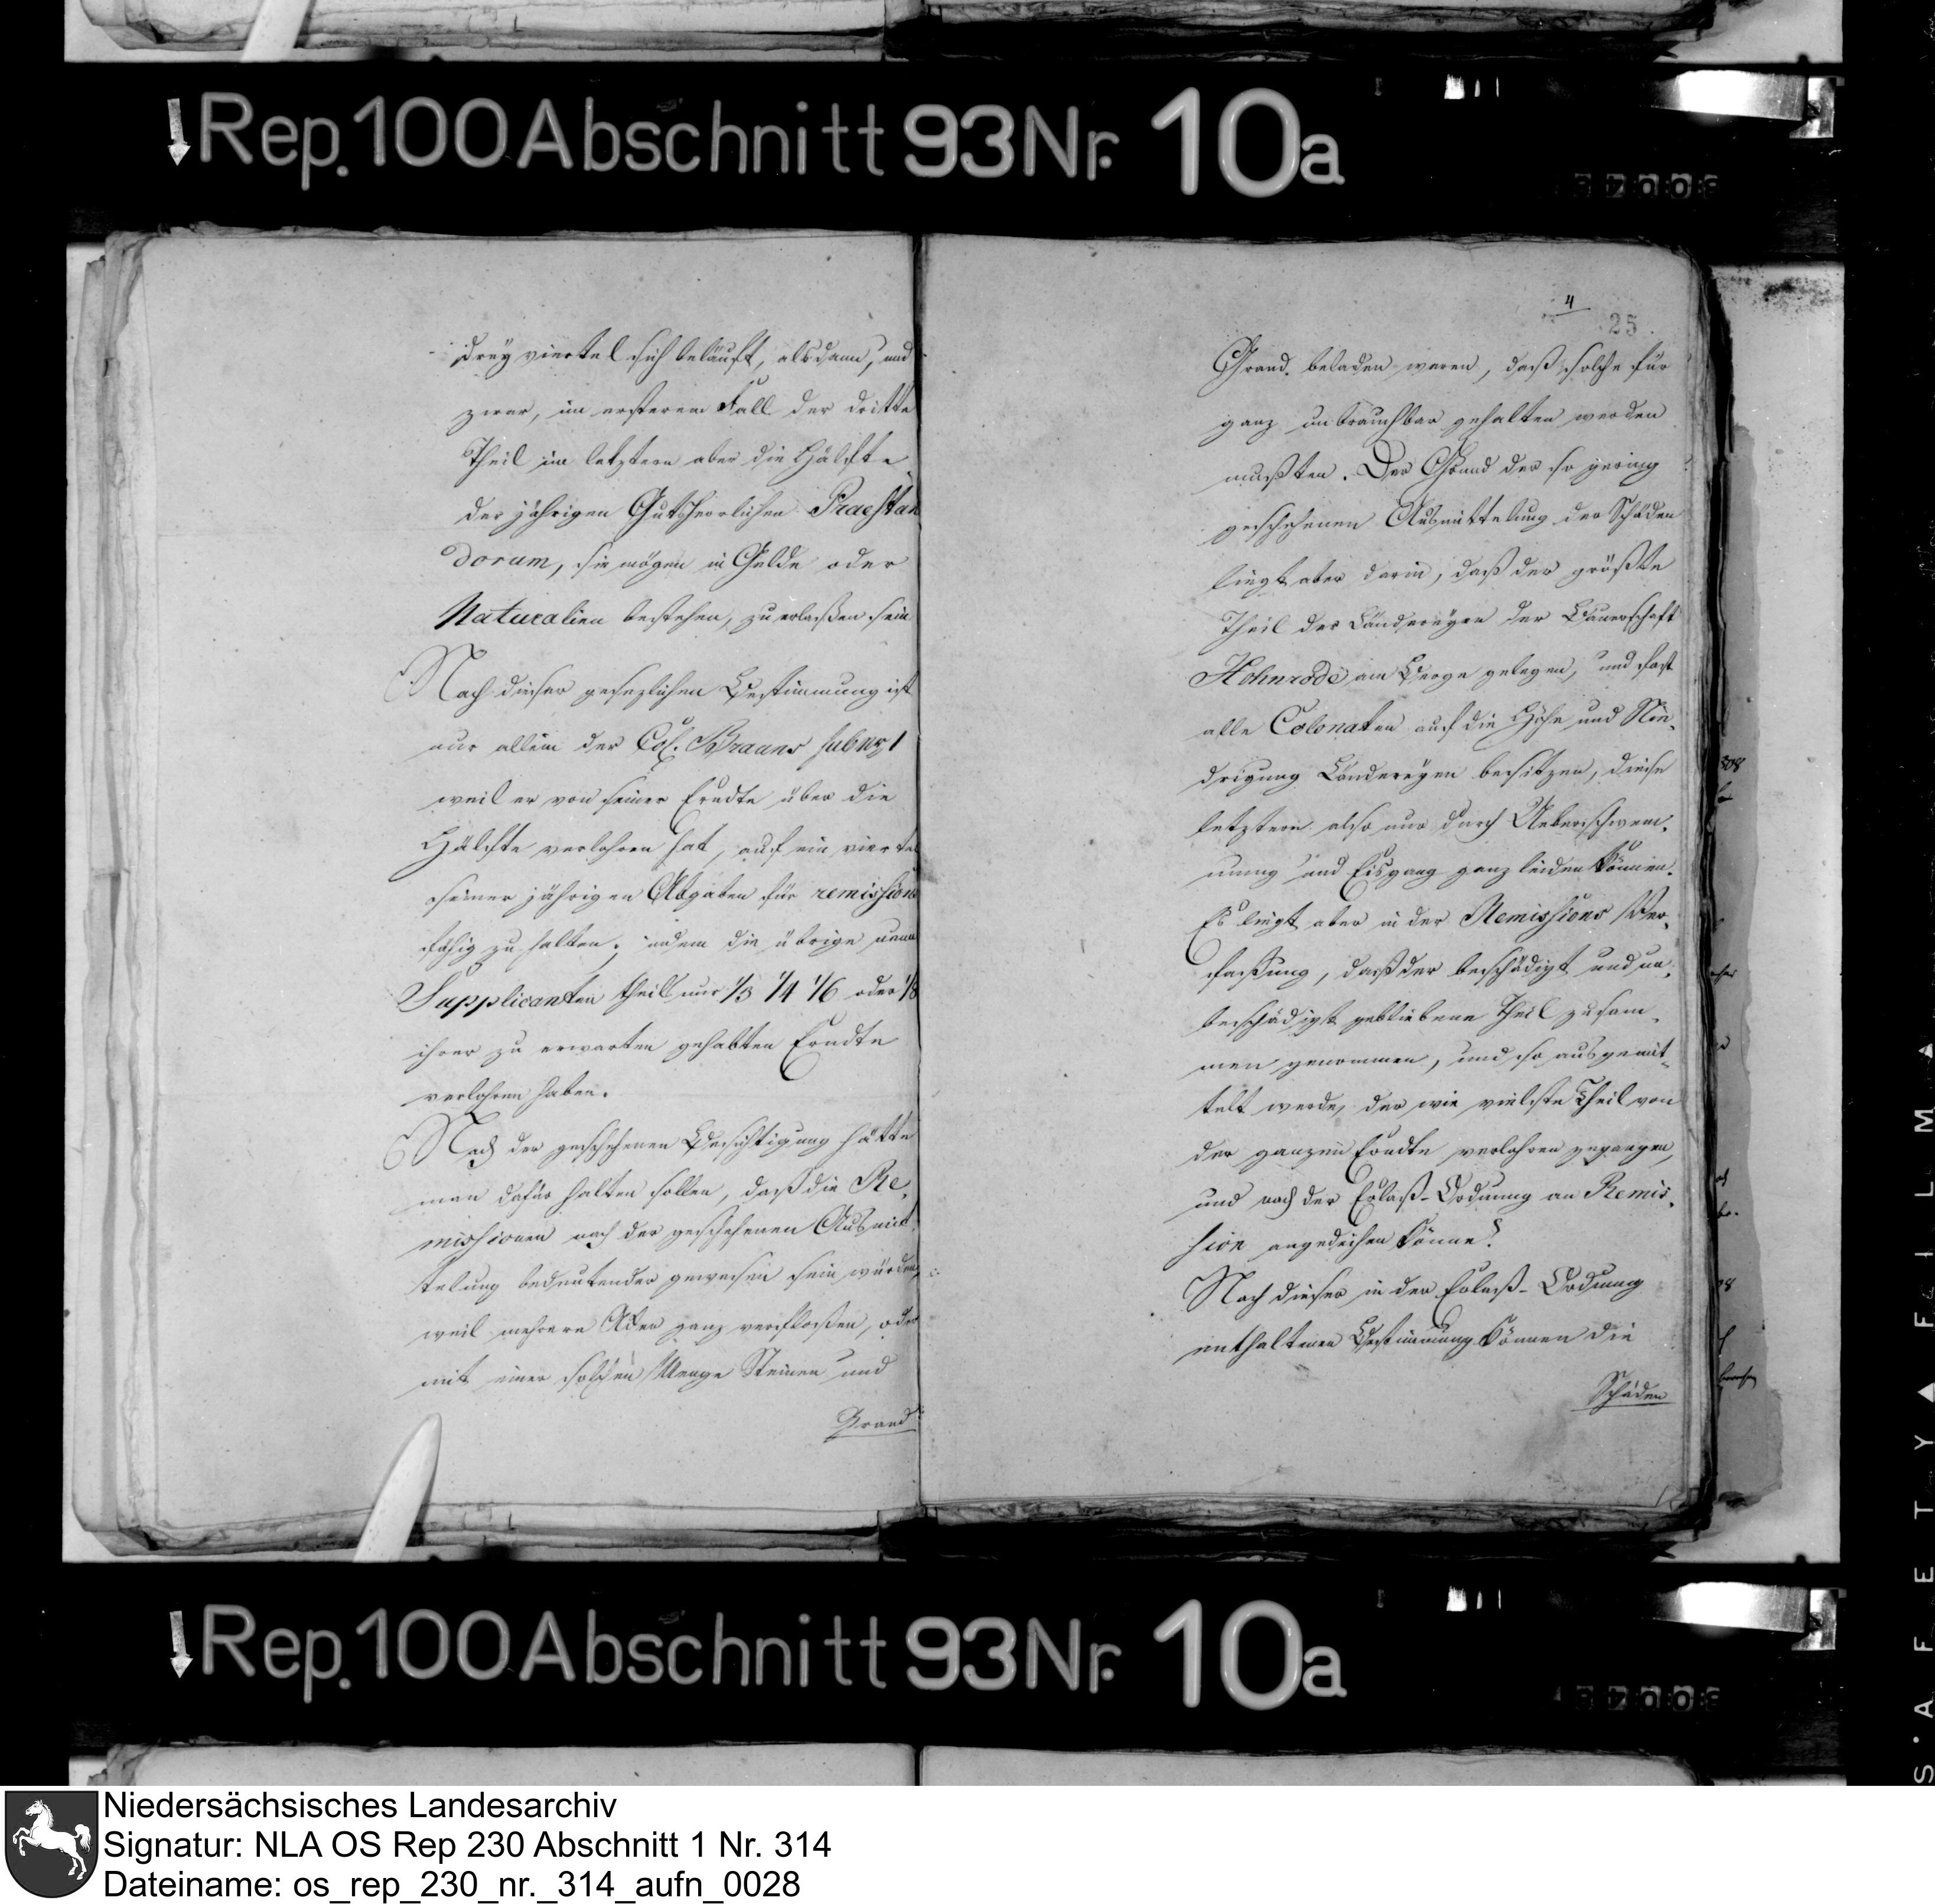 Rep. 100 Abschnitt 93 Nr. 10a
drey viertel sich beläuft, alsdann, und
zwar, im ersterem Fall der dritte
Theil im letztern aber die Hälfte
der jährigen Gutsherrlichen Praestan
dorum, sie mögen in Gelde oder
Naturalien bestehen, zu erlaßen sein
Nach dieser gesezlichen Bestimmung ist
nur allein der Col. Brauns sub nr 1
weil er von seiner Erndte über die
Hälfte verlohren hat, auf ein viertel
seiner jährigen Abgaben für remissions
fähig zu halten; indem die übrige
Supplicanten theils nur 1/3 1/4 1/6 oder 1/8
ihrer zu erwarten gehabten Erndte
verlohren haben.
Nach der geschehenen Besichtigung hätte
man dafür halten sollen, daß die Re,
missionen nach der geschehenen Ausmit,
telung bedeutender gewesen sein würden,
weil mehrere Aecker ganz verfloßen, oder
mit einer solchen Menge Steinen und
Grand
4
25.
Grand beladen waren, daß solche für
ganz unbrauchbar gehalten werden
mußten. Der Grund der so gering
geschehenen Ausmittelung der Schäden
liegt aber darin, daß der größte
Theil der Ländereyen der Bauerschaft
Hohnrode am Berge gelegen, und fast
alle Colonaten auf die Höhe und Nie,
drigung Ländereyen besitzen, diese
letztern also nur durch Ueberschwem,
mung und Eisgang ganz leiden können.
Es liegt aber in der Remissions Ver,
faßung, daß der beschädigt und un,
beschädigt gebliebene Theil zusam,
men genommen, und so ausgemit,
telt werde, der wie vielste Theil von
der ganzen Erndte verlohren gegangen,
und nach der Erlaß-Ordnung an Remis,
sion angedeihen könne?
Nach dieser in der Erlaß-Ordnung
enthaltenen Bestimmung können die
Schäden
Rep. 100 Abschnitt 93 Nr. 10a
SAFETY FILM
Niedersächsisches Landesarchiv
Signatur: NLA OS Rep 230 Abschnitt 1 Nr. 314
Dateiname: os_rep_230_nr._314_aufn_0028